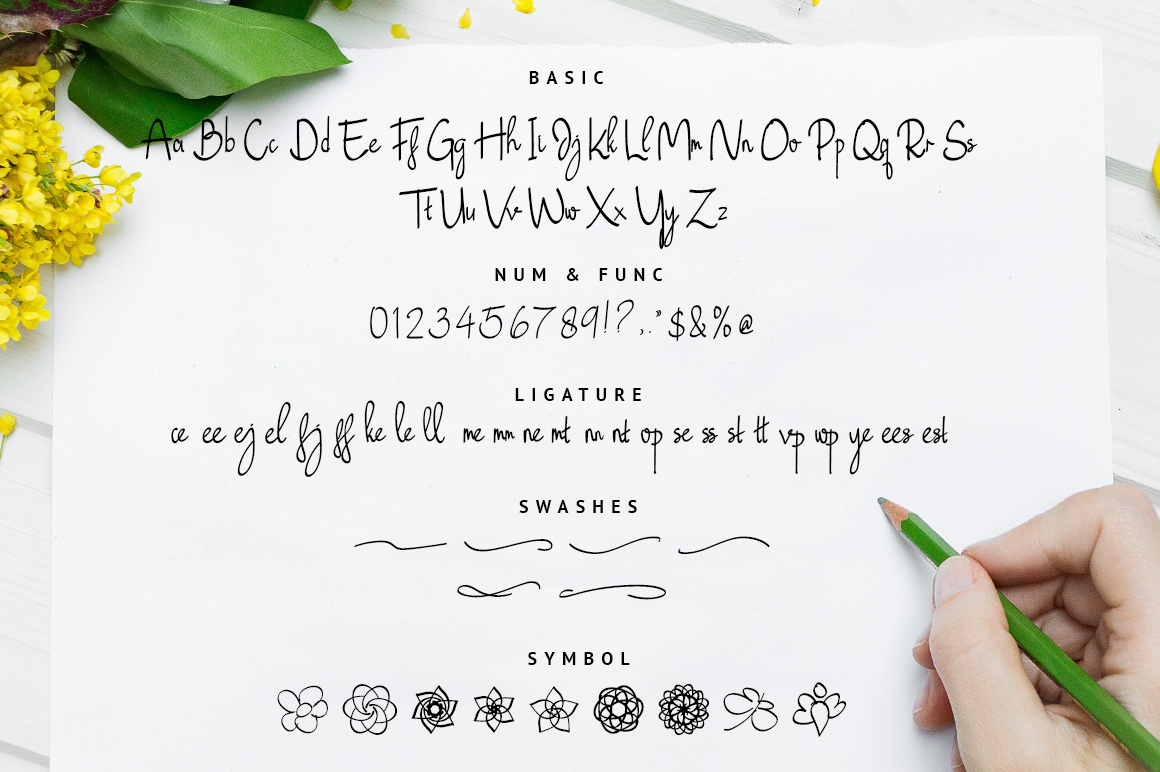 BASIC
Aa Bb Cc Dd Ee Ff Gg Hh Ii Jj Kk Ll Mm Nn Oo Pp Qq Rr Ss
Tt Uu Vv Ww Xx Yy Zz
NUM & FUNC
0123456789!?,.”$&%@
LIGATURE
ce ee ej el fj ff ke le ll me mm ne mt nn nt op se ss st tt vp wp ye ees est
SWASHES
SYMBOL